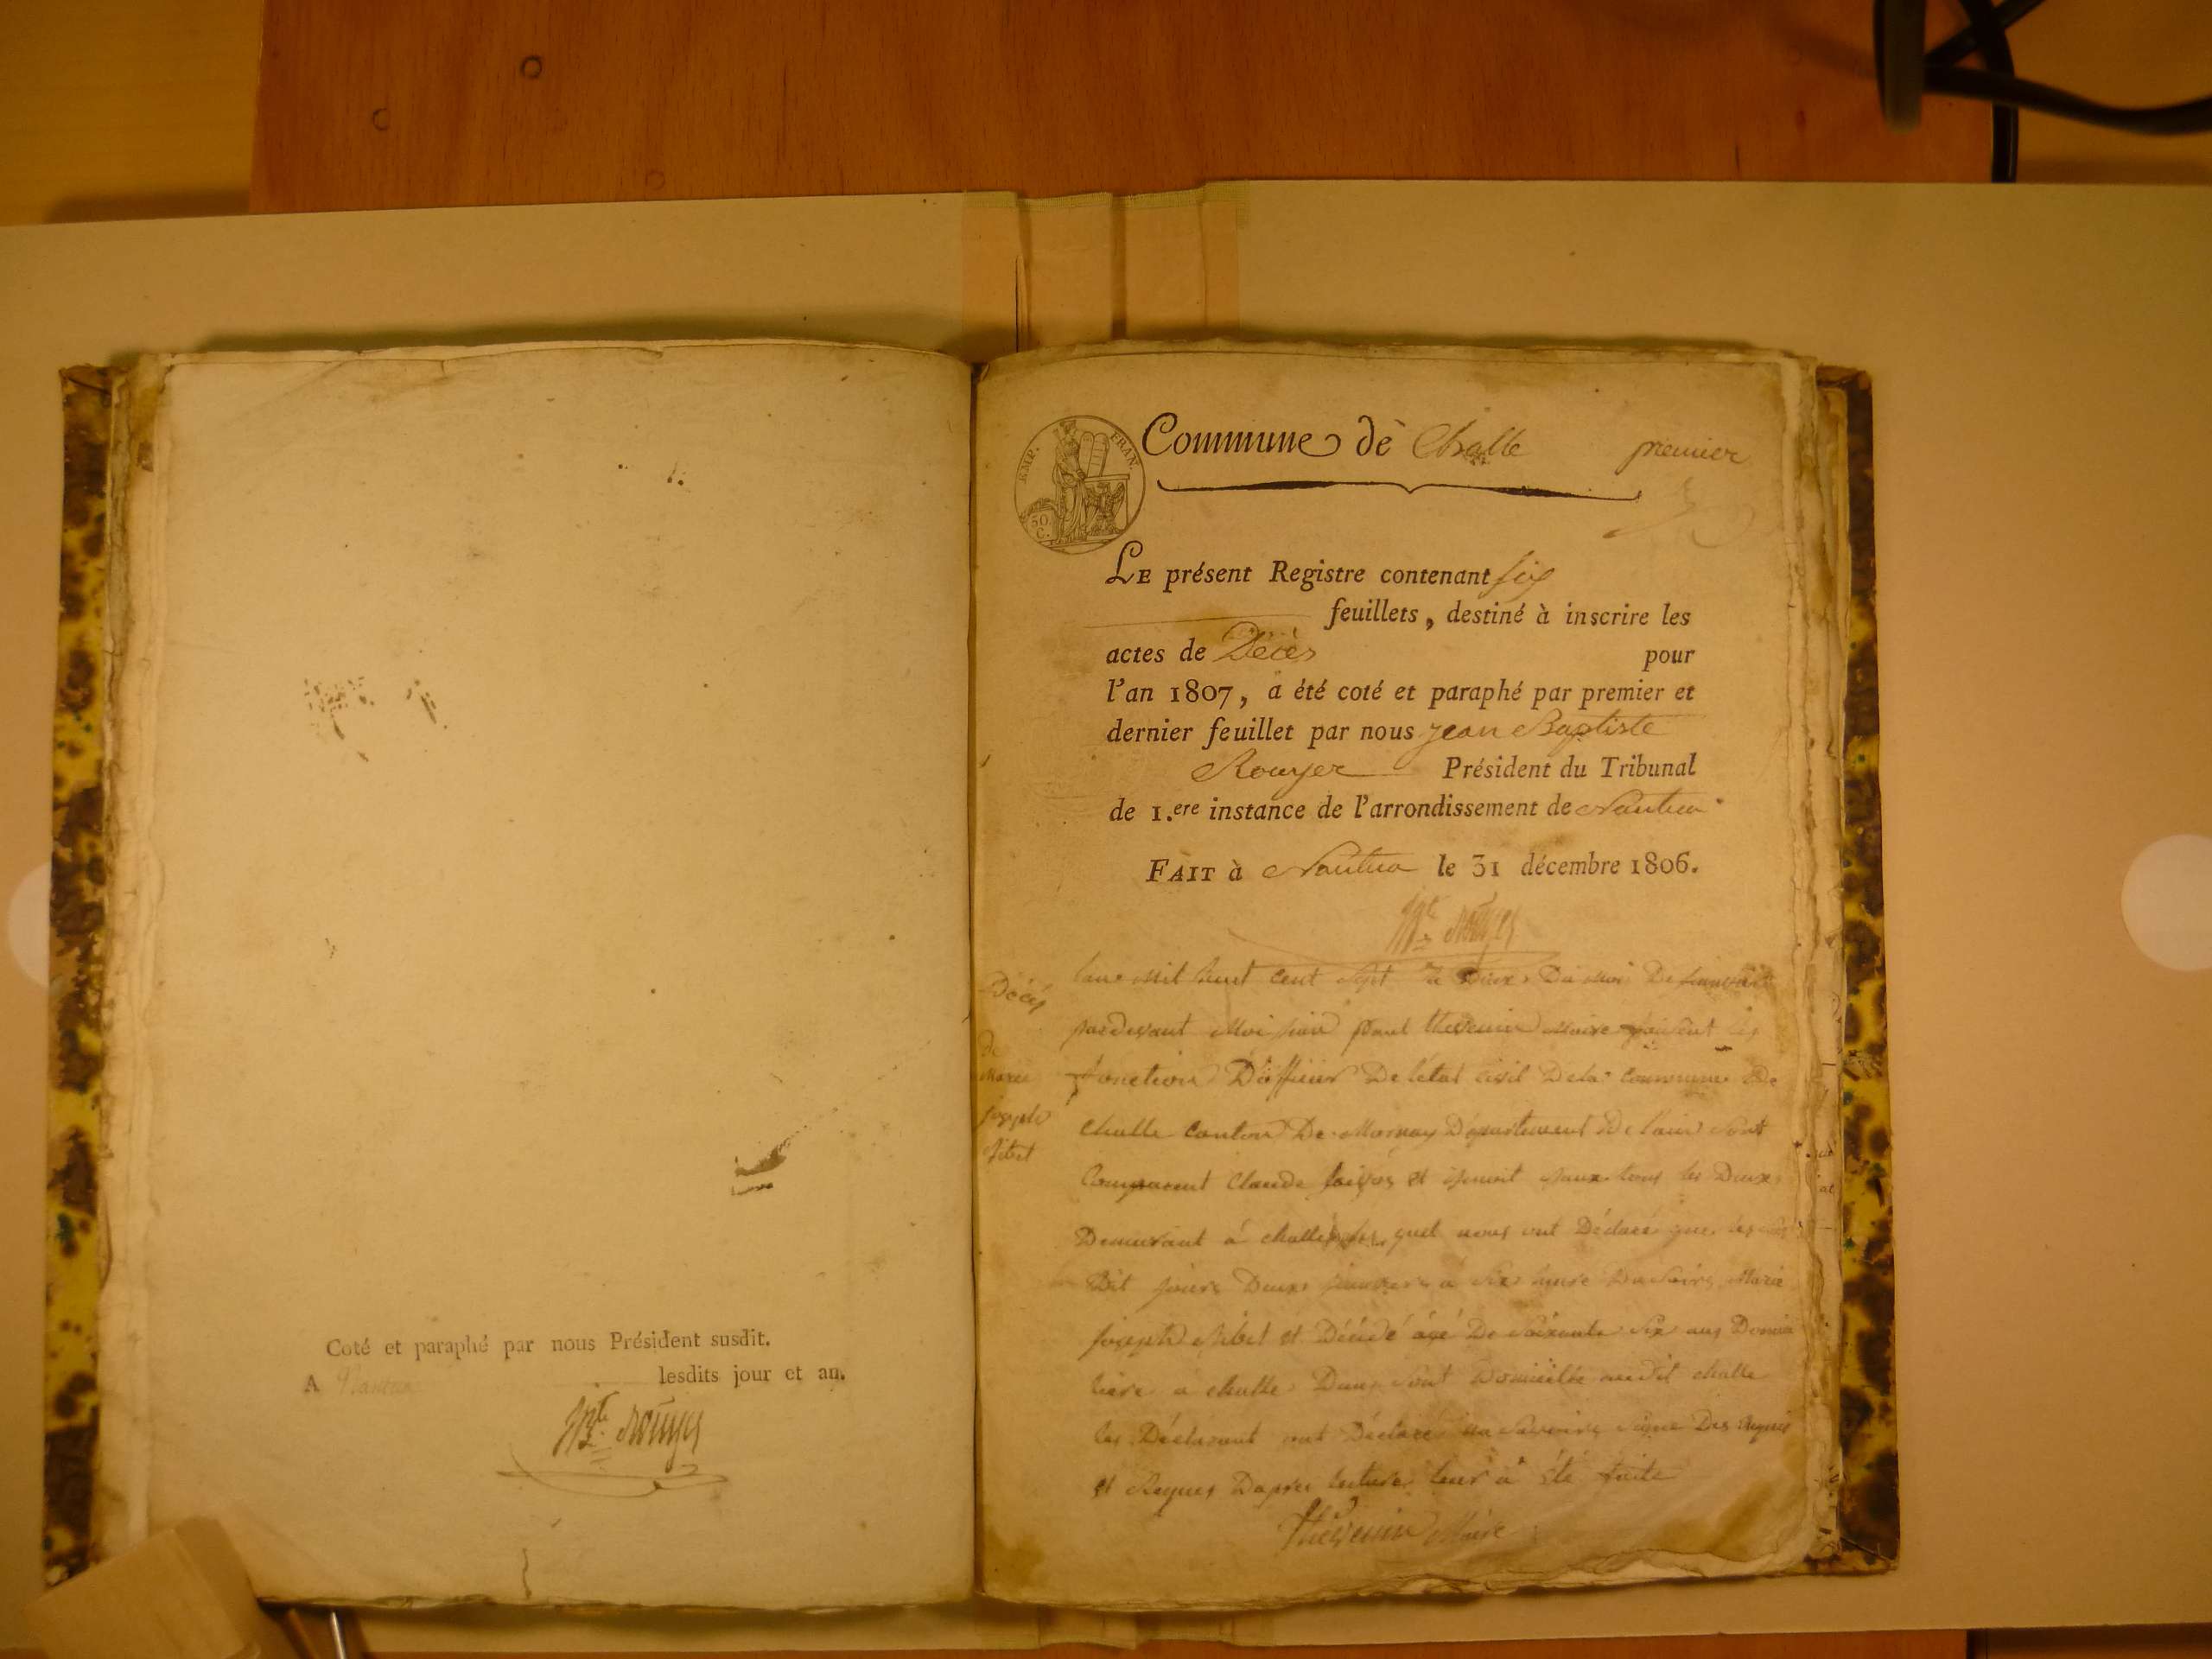 Coté et paraphé par nous Président susdit.
A Nantua lesdits jour et an.
JBte Rouyer
EMP. FRAN.
50 C.
Commune de Challe
premier
LE présent Registre contenant six
feuillets, destiné à inscrire les
actes de Décès pour
l'an 1807, a été coté et paraphé par premier et
dernier feuillet par nous jean Baptiste
Rouyer Président du Tribunal
de 1.ere instance de l'arrondissement de Nantua
FAIT à Nantua le 31 décembre 1806.
JBte Rouyer
Décès
de
Marie
joseph
Nibet
l'an mil huit cent sept le Deux Du moi De
pardevant Moi paul thevenin Maire faisent les
fonction De létat civil Dela commune De
challe canton De Mornay Département De lain sont
Comparent Claude et tous les Deux
Demeurant à challe quel nous ont Déclaré que
Dit jours Deux janvier à Six heure Du Soire Marie
joseph Nibet et Décédé agé De Soixante Six ans
à challe audit challe
les Déclarant ont Déclaré Signe
et Requis Dapres lecture leur a été faite
thevenin Maire